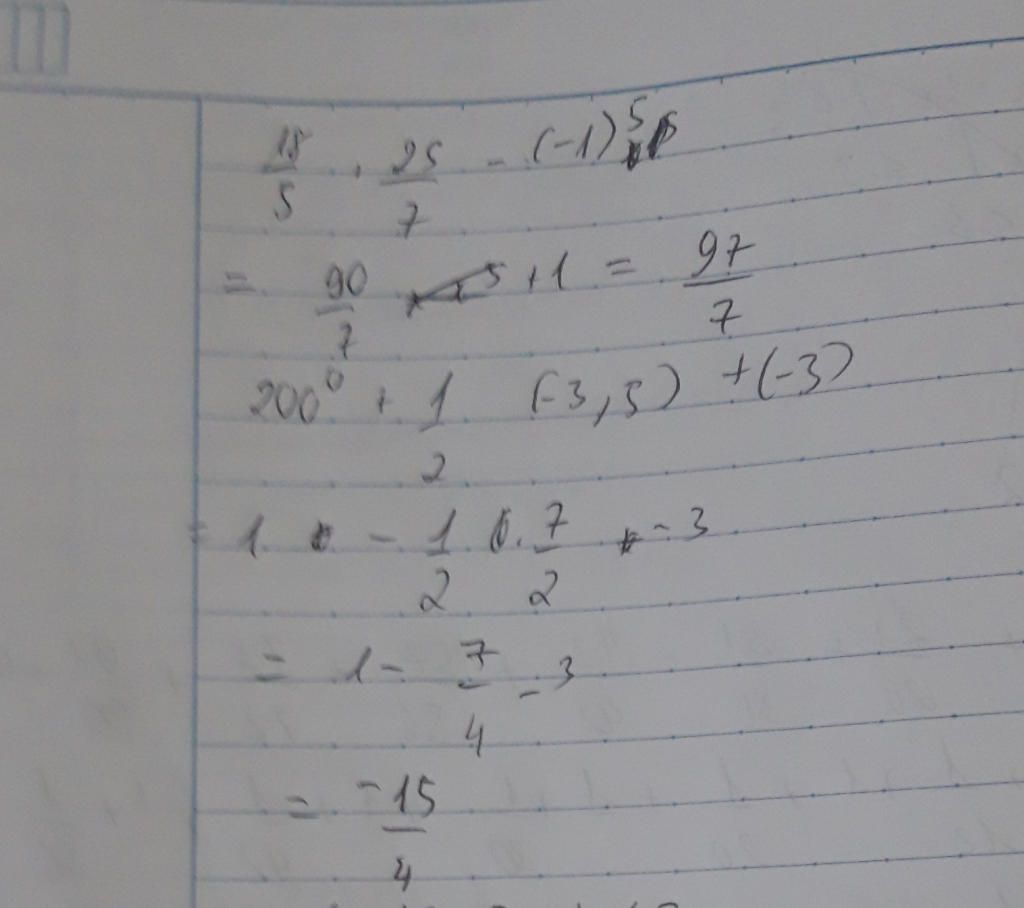 18/5 . 25/7 - (-1)^5
= 90/7 + 1 = 97/7
200^0 + 1/2 (-3,5) + (-3)
= 1 - 1/2 . 7/2 - 3
= 1 - 7/4 - 3
= -15/4